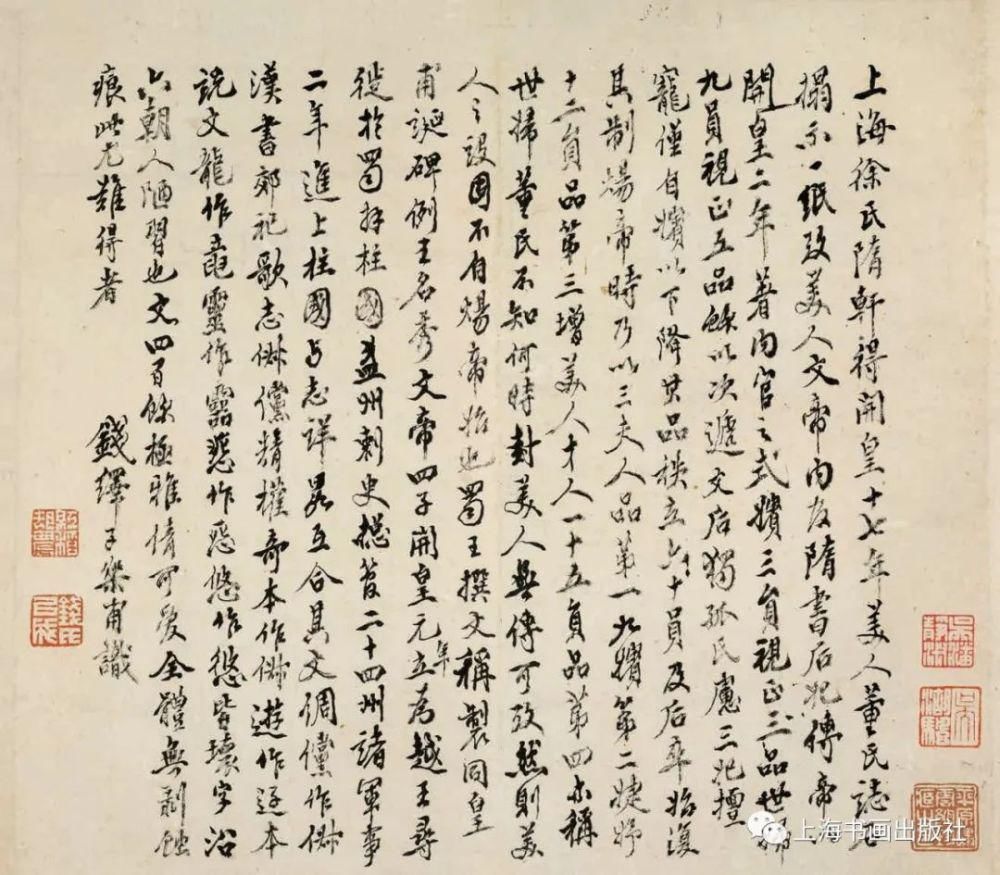 上海徐氏隋軒得開皇十七年美人董氏誌石
搨示一紙攷美人文帝内官隋書后妃傳帝
開皇二年著内官之式嬪三員視正三品世婦
九員視正五品餘以次遞文后獨孤氏慮三妃擅
寵僅自嬪以下降其品秩立六十員及后卒始復
具制煬帝時乃以三夫人品第一九嬪第二婕妤
十二員品第三增美人才人一十五員品第四亦稱
世婦董氏不知何時封美人無傳可攷然則美
人之設固不自煬帝始也蜀王撰文稱製同皇
甫誕碑例王名秀文帝四子開皇元年立為越王尋
徙於蜀拜柱國益州刺史總管二十四州諸軍事
二年進上柱國与志詳畧互合其文倜儻作俶
漢書郊祀歌志俶儻精權奇本作俶遊作逕本
説文龍作靈作惡作悠作皆壞字沿
六朝人陋習也文四百餘極雅情可愛全體無剥蝕
痕此尤難得者
錢繹子樂甫識
上海书画出版社